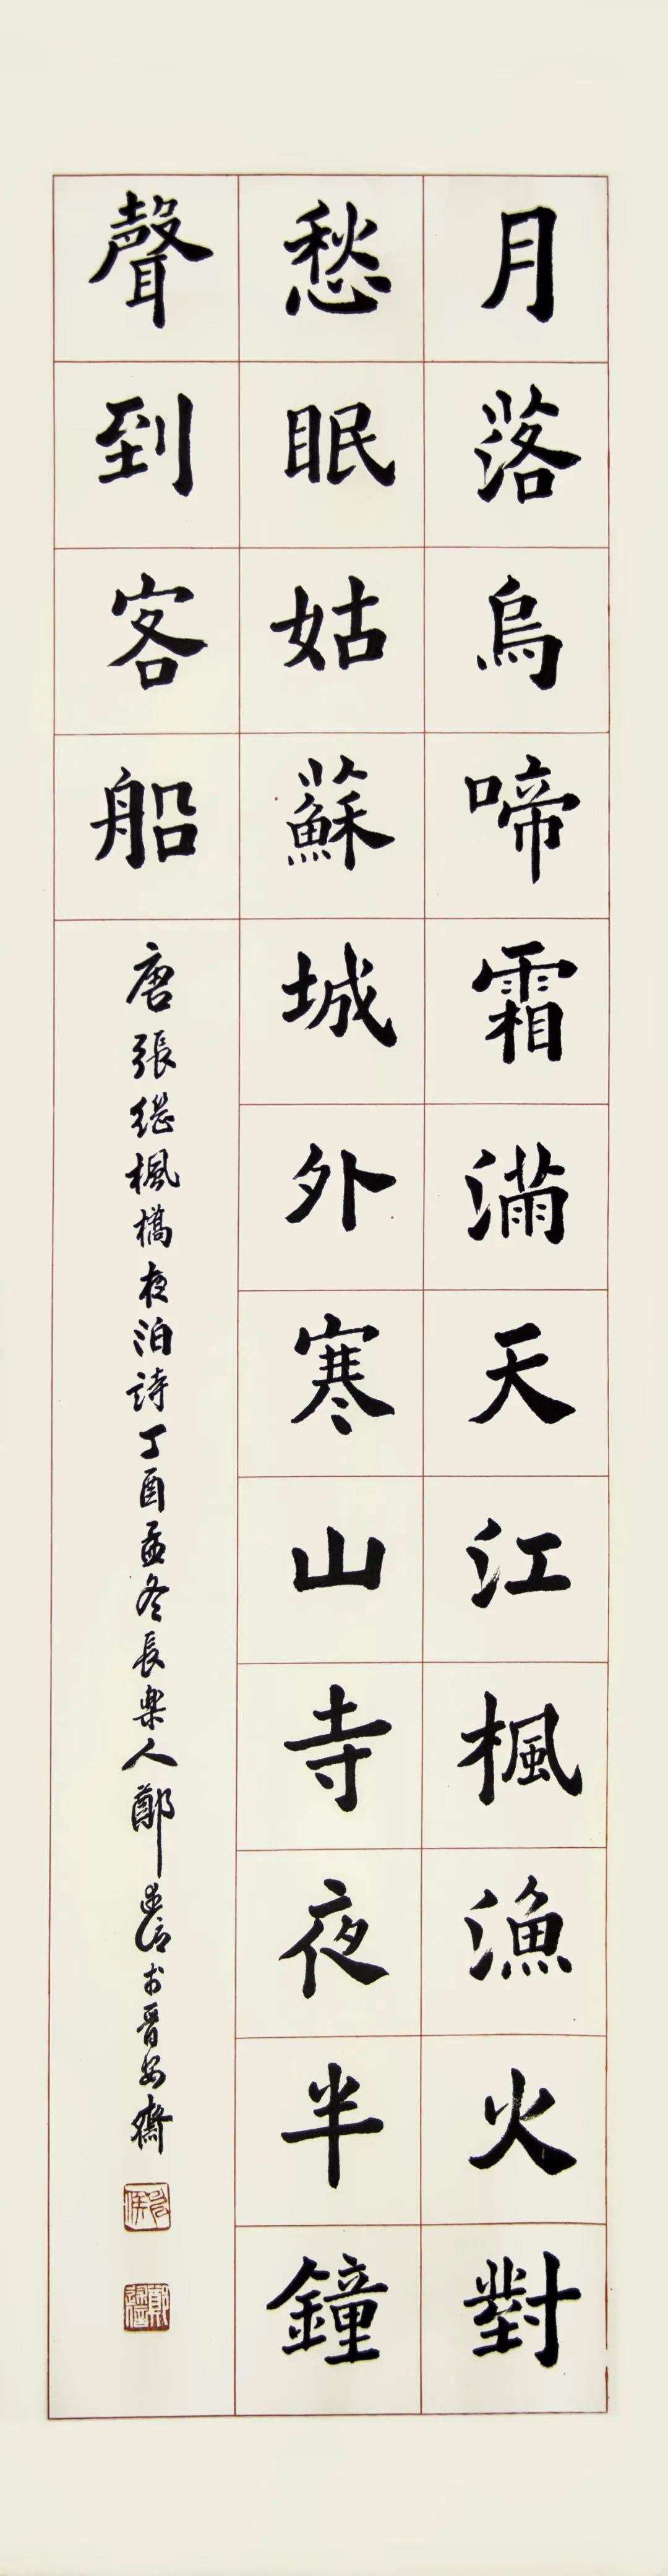 月落烏啼霜滿天江楓漁火對
愁眠姑蘇城外寒山寺夜半鐘
聲到客船
唐張繼楓橋夜泊詩丁酉孟冬長樂人鄭於晉安齋